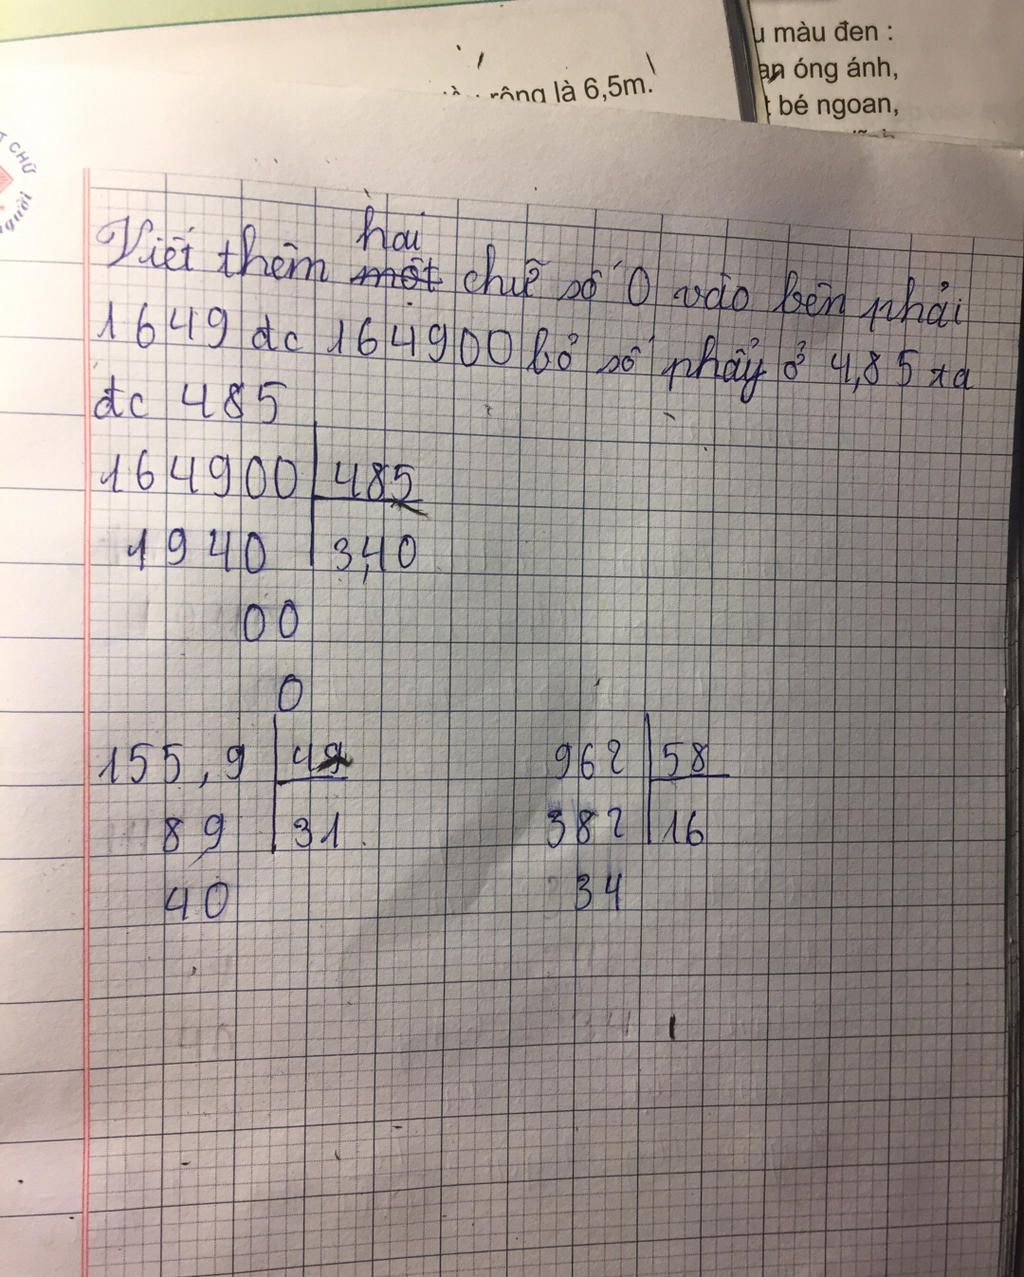 u màu đen :
óng ánh,
rộng là 6,5m.
bé ngoan,
CHỮ
người
hai
Viết thêm một chữ số 0 vào bên phải
1649 đc 164900 bỏ số phẩy ở 4,85 ta
đc 485
164900 485
1940 3,40
00
0
155,9 49
89 31
40
962 58
382 16
34